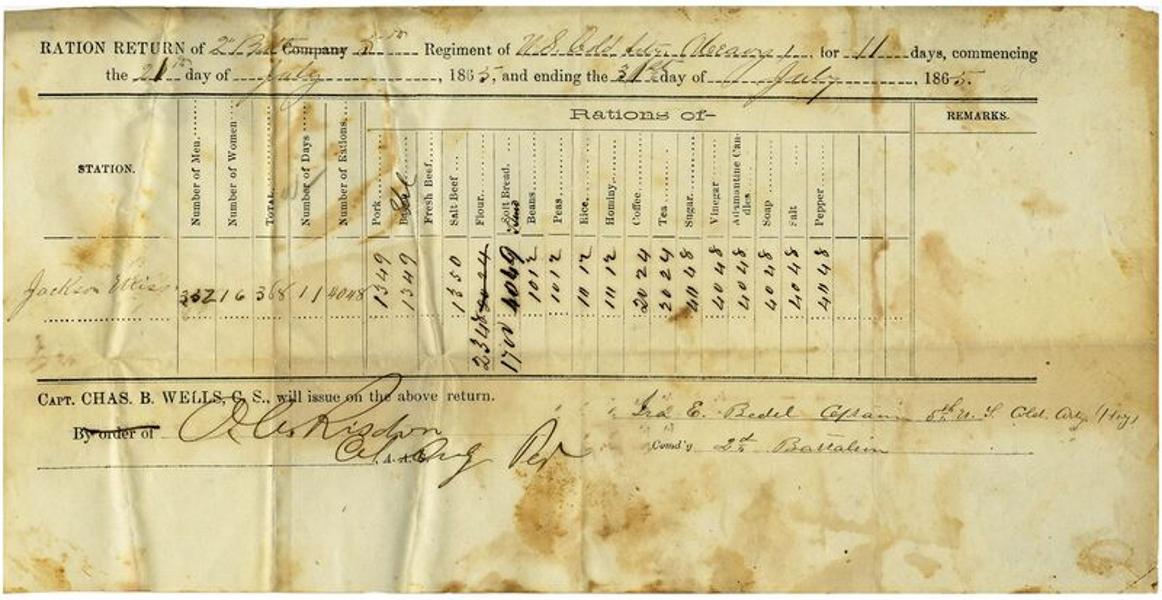 RATION RETURN of 2d Batt Company 5th Regiment of U.S. Cold Arty (Heavy), for 11 days, commencing
the 21st day of July, 1865, and ending the 31st day of July, 1865.
STATION. Number of Men. Number of Women TOTAL Number of Days Number of Rations. Rations of- REMARKS.
Pork Bacon Fresh Beef Salt Beef Flour. Soft Bread. Beans Peas Rice. Hominy. Coffee Tea Sugar. Vinegar Adamantine Candles Soap Salt Pepper
Jackson 352 16 368 11 4048 1349 1349 1350 2024 4049 1012 1012 1012 1012 2024 2024 4048 4048 4048 4048 4048 4048
2348 1700
CAPT. CHAS. B. WELLS, C. S., will issue on the above return.
By order of
A. A.
Ira E. Bedel Captain 5th U.S. Cold. Arty (Hvy)
Comd'g 2d Battalion